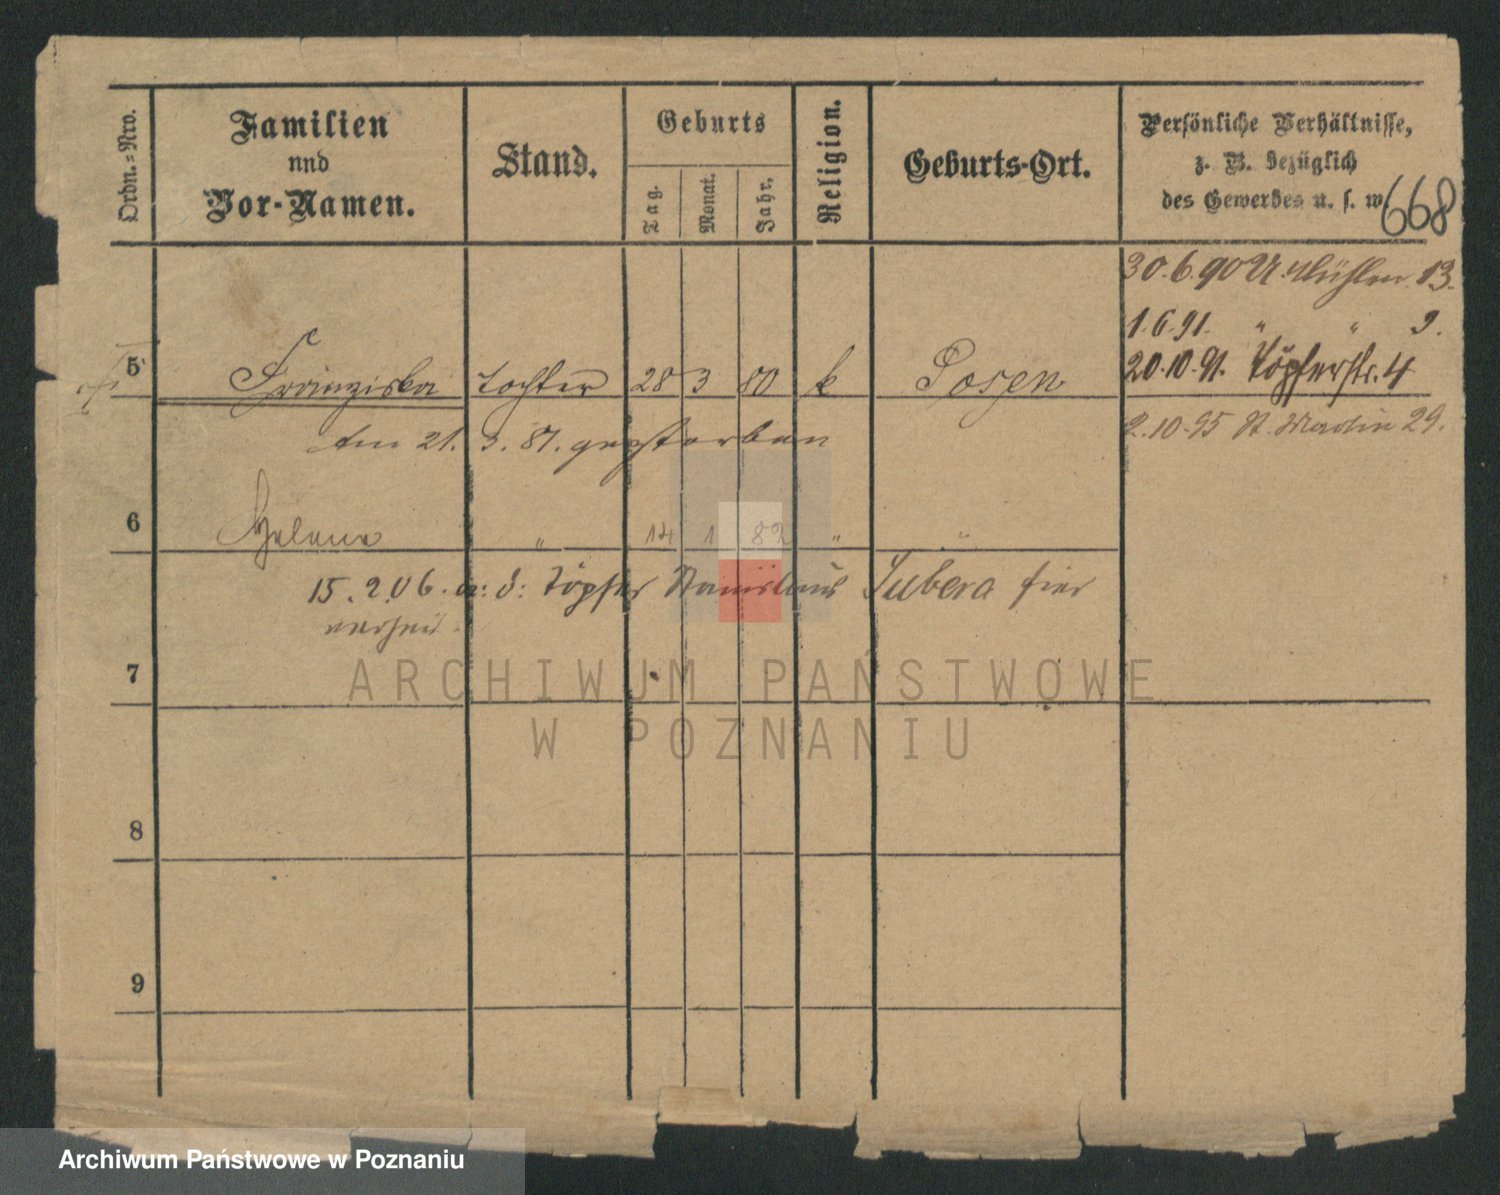 Ordn.-Nro.
Familien
und
Vor-Namen.
Stand.
Geburts
Tag.
Monat.
Jahr.
Religion.
Geburts-Ort.
Persönliche Verhältnisse,
z. B. bezüglich
des Gewerbes u. s. w.
668
30.6.90 U. Mühlen 13.
1.6.91. " " 9.
5 Franziska Tochter 28 3 80 k Posen
20.10.91. Töpferstr. 4
am 21. 3. 81. gestorben
2.10.95 St. Martin 29.
6 Helena " 14 1 82 " "
15.2.06. a: d: Töpfer Stanislaus Lubera hier
verheir.
7
ARCHIWUM PAŃSTWOWE
W POZNANIU
8
9
Archiwum Państwowe w Poznaniu